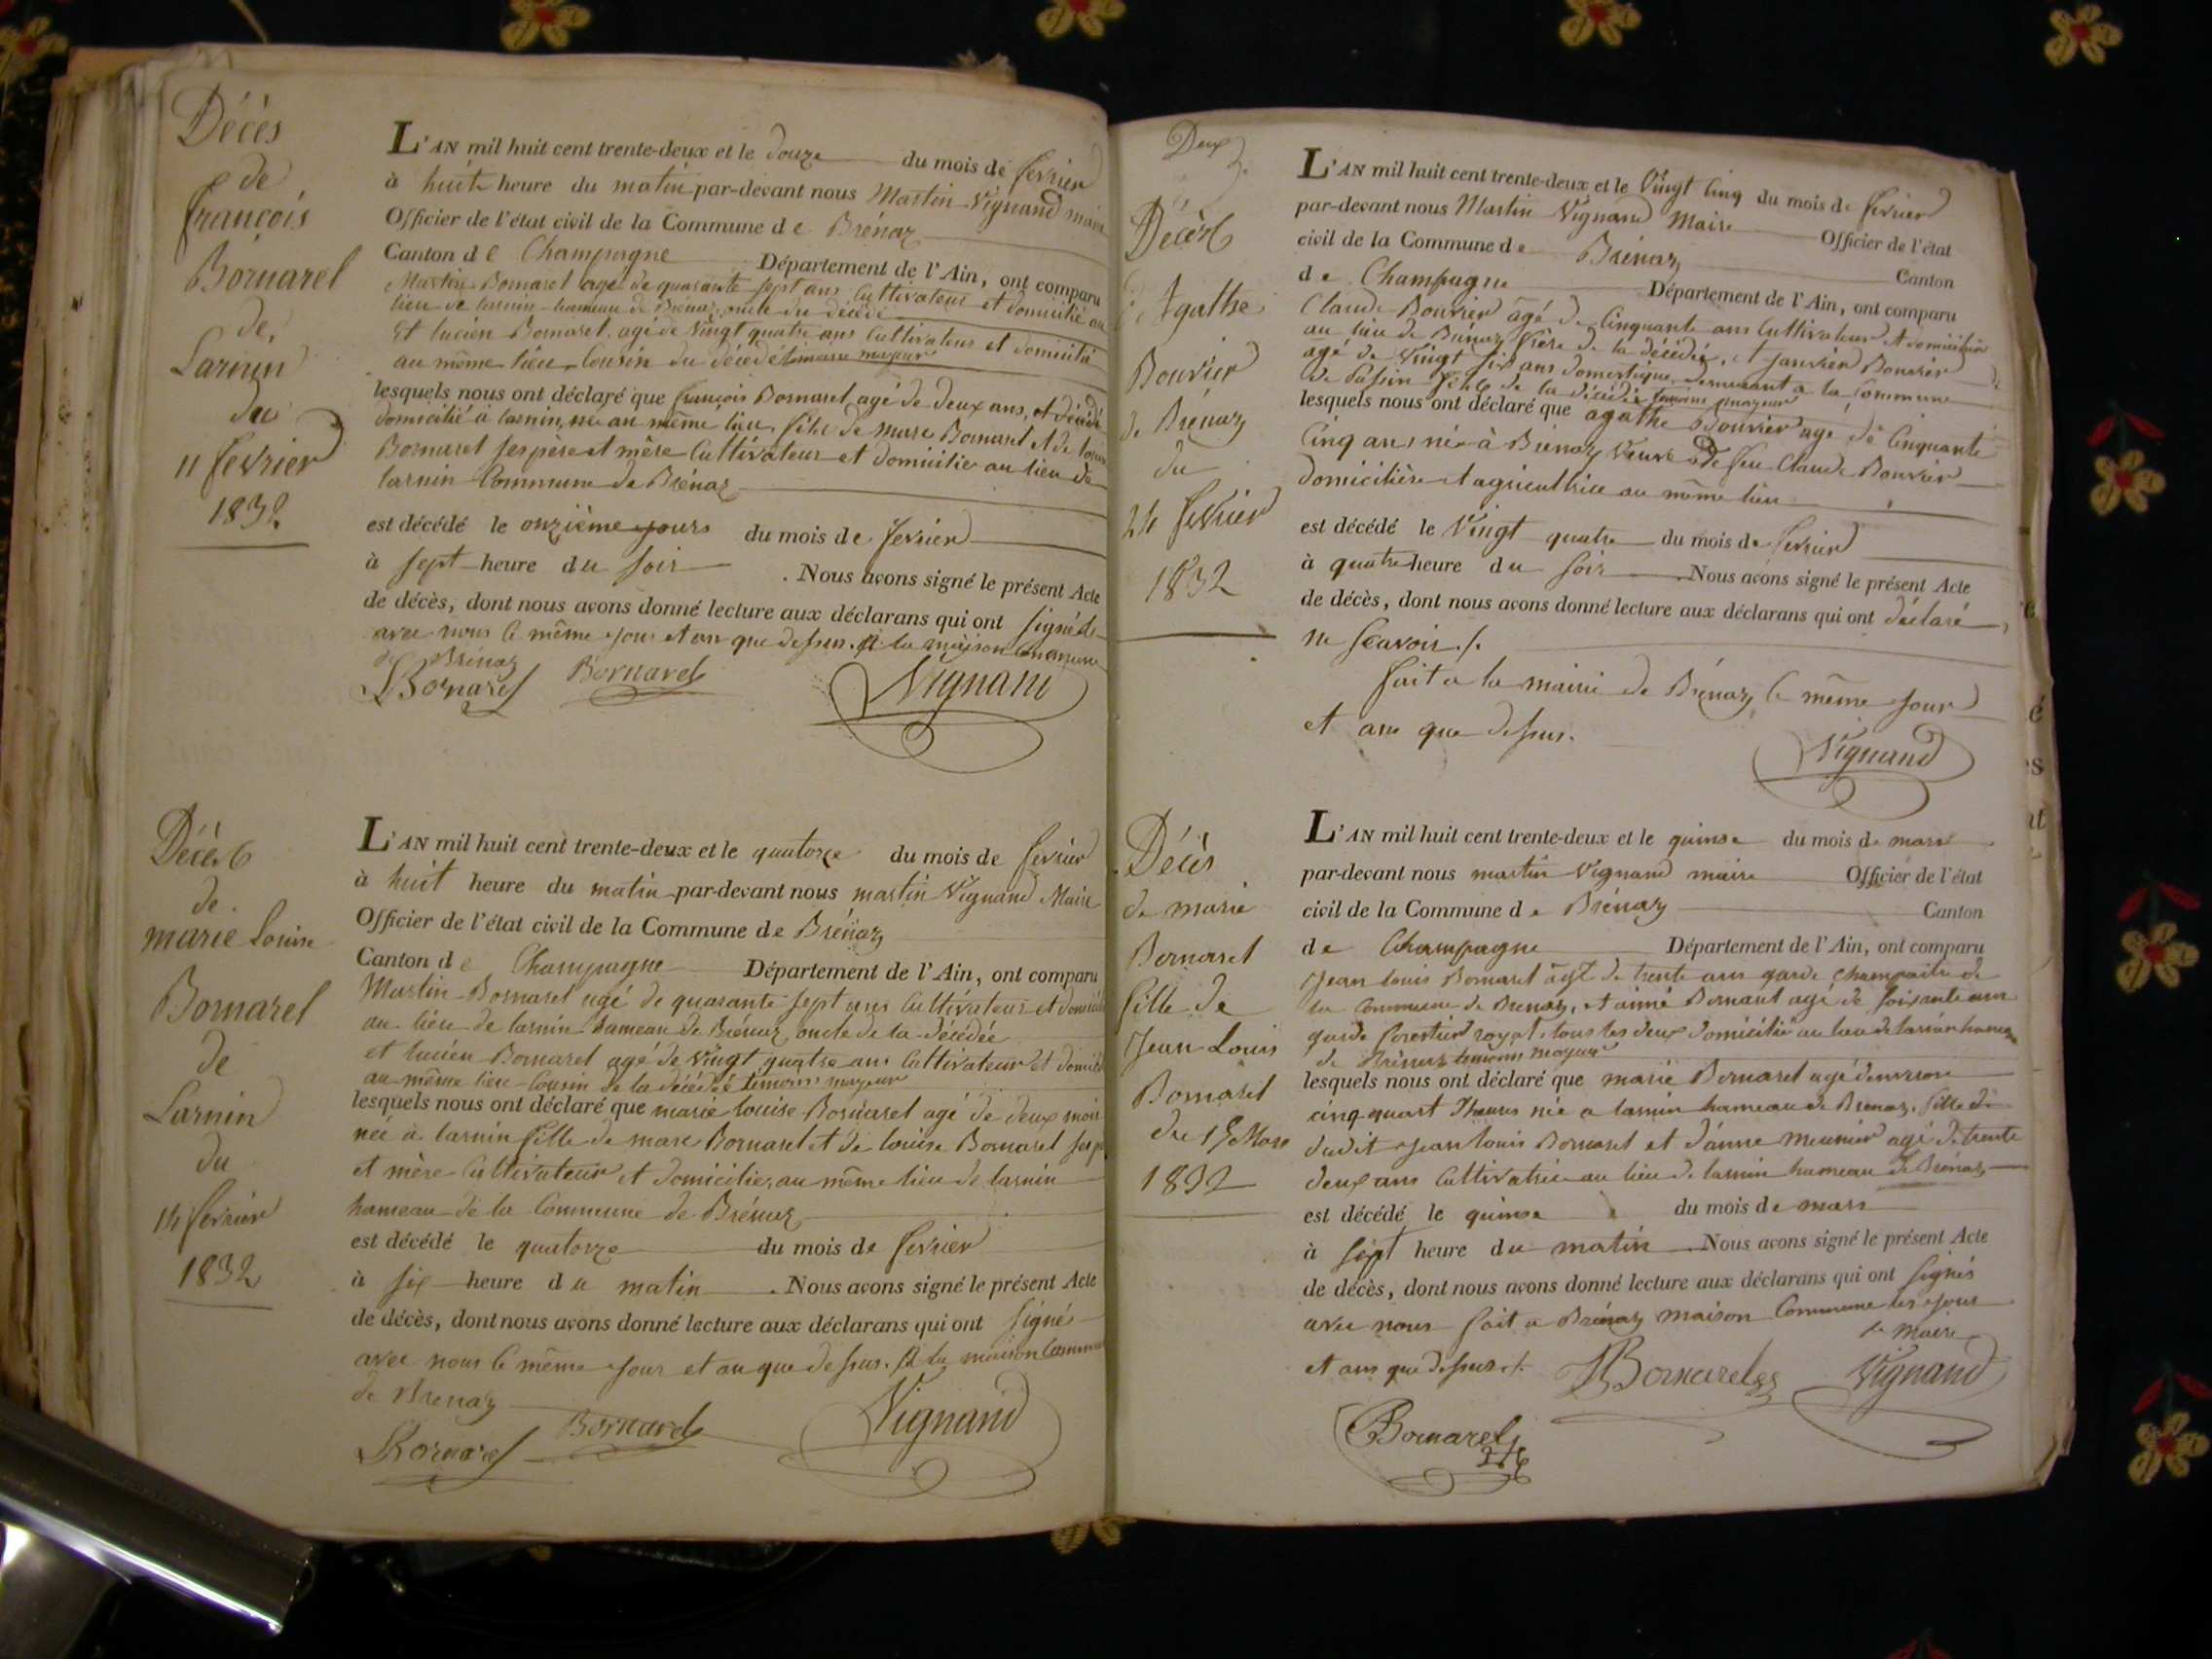 Décès
de
françois
Bornarel
de
Larnin
du
11 fevrier
1832
L'AN mil huit cent trente-deux et le douze du mois de fevrier
à huit heure du matin par-devant nous Martin Vignand maire
Officier de l'état civil de la Commune de Brénaz
Canton de Champagne Département de l'Ain, ont comparu
Martin Bornarel agé de quarante sept ans Cultivateur et domicilié au
lieu de larnin hameau de Brénaz, oncle du décédé
Et lucien Bornarel, agé de vingt quatre ans Cultivateur et domicilié
au même lieu Cousin du décédé témoins majeur
lesquels nous ont déclaré que françois Bornarel agé de deux ans, et décédé
domicilié à larnin, né au même lieu, fils de marc Bornarel et de louise
Bornarel ses père et mère Cultivateur et domicilie au lieu de
larnin Commune de Brénaz
est décédé le onzième jours du mois de fevrier
à sept heure du soir . Nous avons signé le présent Acte
de décès, dont nous avons donné lecture aux déclarans qui ont signés
avec nous le même jour et an que dessus. à la maison Commune
de Brénaz
LBornarel Bornarel Vignand
Décès
de
marie Louise
Bornarel
de
Larnin
du
14 fevrier
1832
L'AN mil huit cent trente-deux et le quatorze du mois de fevrier
à huit heure du matin par-devant nous martin Vignand Maire
Officier de l'état civil de la Commune de Brénaz
Canton de Champagne Département de l'Ain, ont comparu
Martin Bornarel agé de quarante sept ans Cultivateur et domicilié
au lieu de larnin hameau de Brénaz oncle de la décédée
et lucien Bornarel agé de vingt quatre ans Cultivateur et domicilié
au même lieu Cousin de la décédée témoins majeur
lesquels nous ont déclaré que marie louise Bornarel agé de deux mois
née à larnin fille de marc Bornarel et de louise Bornarel ses père
et mère Cultivateur et domicilies au même lieu de larnin
hameau de la Commune de Brénaz
est décédé le quatorze du mois de fevrier
à six heure du matin . Nous avons signé le présent Acte
de décès, dont nous avons donné lecture aux déclarans qui ont signés
avec nous le même jour et an que dessus. à la maison Commune
de Brenaz
LBornarel Bornarel Vignand
Deux
Décès
d'Agathe
Bouvier
de Brénaz
du
24 fevrier
1832
L'AN mil huit cent trente-deux et le Vingt Cinq du mois de fevrier
par-devant nous Martin Vignand Maire Officier de l'état
civil de la Commune de Brénaz Canton
de Champagne Département de l'Ain, ont comparu
Claude Bouvier âgé de Cinquante ans Cultivateur et domicilié
au lieu de Brénaz frère de la décédée, et janvier Bouvier
agé de Vingt six ans domestique demeurant à la Commune
de Passin fils de la décédée témoins majeur
lesquels nous ont déclaré que agathe Bouvier agé de Cinquante
Cinq ans né à Brénaz Veuve de feu Claude Bouvier
domicilière et agricultrice au même lieu
est décédé le Vingt quatre du mois de fevrier
à quatre heure du soir . Nous avons signé le présent Acte
de décès, dont nous avons donné lecture aux déclarans qui ont déclaré
ne scavoir ./.
fait a la mairie de Brénaz le même Jour
et an que dessus.
Vignand
Décès
de marie
Bornarel
fille de
Jean Louis
Bornarel
du 15 Mars
1832
L'AN mil huit cent trente-deux et le quinse du mois de mars
par-devant nous martin Vignand maire Officier de l'état
civil de la Commune de Brénaz Canton
de Champagne Département de l'Ain, ont comparu
Jean louis Bornarel âgé de trente ans garde champaitre de
la Commune de Brenaz, et aimé Bornarel agé de soixante ans
garde forestier royal, tous les deux domicilié au lieu de larnin hameau
de Brénaz temoins majeur
lesquels nous ont déclaré que marie Bornarel agé denviron
cinq quart d'heures née a larnin hameau de Brenaz. fille de
dudit Jean louis Bornarel et d'anne meunier agé de trente
deux ans Cultivatrice au lieu de larnin hameau de Brénaz
est décédé le quinse du mois de mars
à sept heure du matin . Nous avons signé le présent Acte
de décès, dont nous avons donné lecture aux déclarans qui ont signés
avec nous fait a Brénaz maison Commune les jour
et an que dessus ./. Bornarel le maire Vignand
Bornarel